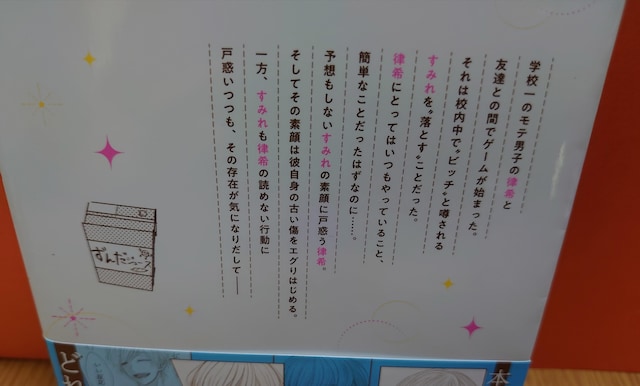 学校一のモテ男子の律希と
友達との間でゲームが始まった。
それは校内中で“ビッチ”と噂される
すみれを“落とす”ことだった。
律希にとってはいつもやっていること、
簡単なことだったはずなのに……。
予想もしないすみれの素顔に戸惑う律希。
そしてその素顔は彼自身の古い傷をエグりはじめる。
一方、すみれも律希の読めない行動に
戸惑いつつも、その存在が気になりだして――
ずんだ
本
どれ